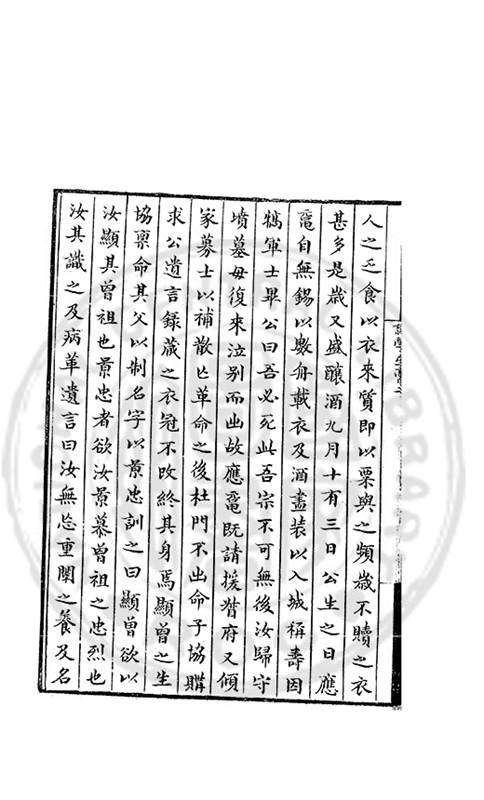 人之乏食以衣來質即以粟與之頻歲不贖之衣
甚多是歲又盛釀酒九月十有三日公生之日應
鼂自無錫以數舟載衣及酒盡裝以入城稱壽因
犒軍士畢公曰吾必死此吾宗不可無後汝歸守
墳墓毋復來泣别而出故應鼂既請援督府又傾
家募士以補散亡革命之後杜門不出命子協購
求公遺言錄蔵之衣冠不改終其身焉顯曾之生
協禀命其父以制名字以景忠訓之曰顯曾欲以
汝顯其曾祖也景忠者欲汝景慕曾祖之忠烈也
汝其識之及病革遺言曰汝無忘重闈之養及名